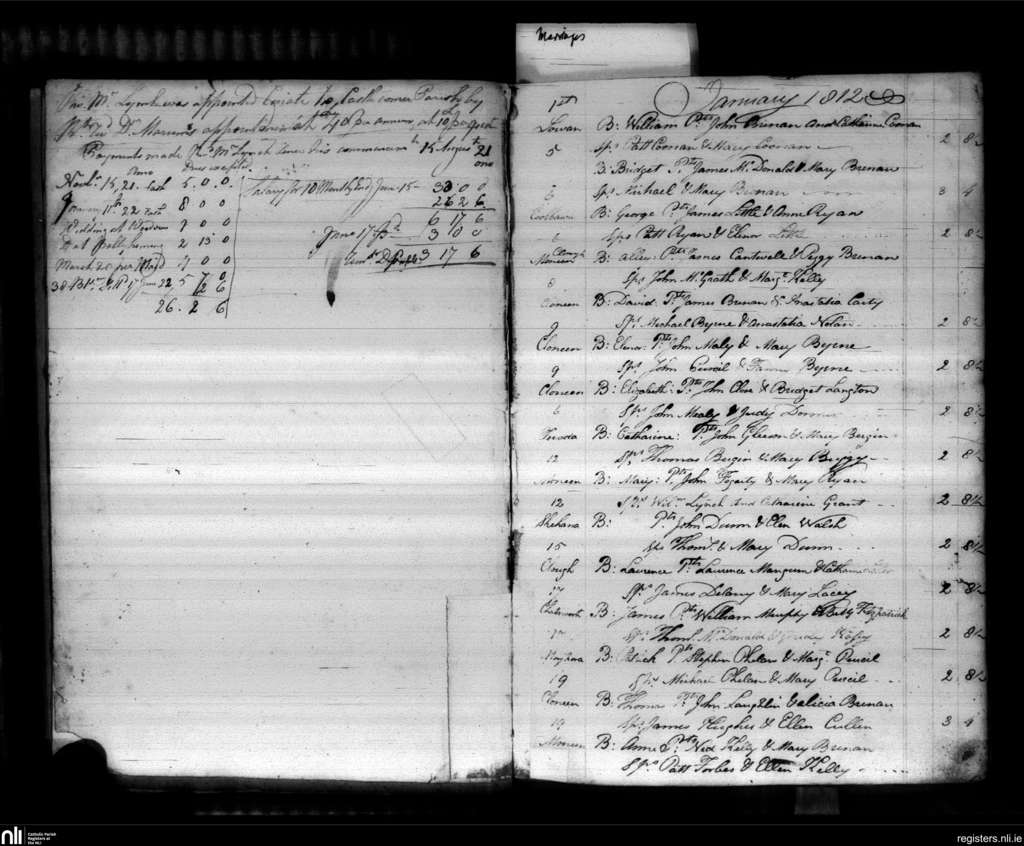 Marriages
Rev. Mr. Lynch was appointed Curate to Castlecomer Parish by
Rt. Revd. Dr. Marum appointment at 40£ pr annum, at 10£ per quarter
Payments made Revd. Mr. Lynch since his commencemt. 15 August 21
Novr. 15, 21. Cash 5. 0. 0.
8 0 0
Wedding at 7 0 0
Do. at Ballyfoning 2 13 0
March 20 per 7 0 0
26. 2 6
Salary for 10 Months end June 15 — 33 0 0
26 2 6
6 17 6
June 17 3 0 0
3 17 6
January 1812
1st
B: William Pts. John Brenan and Catharine Coonan
5 Sps. Patt Coonan & Mary Coonan 2 8½
B: Bridget Pts. James McDonald & Mary Brenan
6 Sps. Michael & Mary Brenan 3 4
Coolbawn B: George Pts. James Little & Anne Ryan
6 Sps. Patt Ryan & Elenor Little 2 8½
Clough
Moneen B: Alice: Pts. James Cantwell & Peggy Brenan
8 Sps. John McGrath & Margt. Kelly
Cloneen B: David: Pts. James Brenan & Anastatia Carty
9 Sps. Michael Byrne & Anastatia Nolan 2 8½
Cloneen B: Elenor: Pts. John Maly & Mary Byrne
9 Sps. John Curcil & Byrne 2 8½
Cloneen B: Elizabeth: Pts. John & Bridget Langton
6 Sps. John Mealy & Judy 2 8½
Firoda B: Catharine: Pts. John Gleeson & Mary Bergin
12 Sps. Thomas Bergin & Mary Buggy 2 8½
Moneen B: Mary: Pts. John Fogarty & Mary Ryan
12 Sps. Wilm. Lynch and Catharine Grant 2 8½
Skehana B: Pts. John Dunn & Elen Walsh
15 Sps. Thoms. & Mary Dunn 2 8½
Clough B: Laurence Pts. Laurence Mangum & Catharine
17 Sps. James Delany & Mary Lacey 2 8½
Chatsworth B: James Pts. William Murphy & Fitzpatrick
17 Sps. Thoms. McDonald & 2 8½
B: Patrick Pts. Stephen Phelan & Margt. Curcil
19 Sps. Michael Phelan & Mary Curcil 2 8½
Cloneen B: Thomas Pts. John Laughlin & Alicia Brenan
19 Sps. James Hughes & Ellen Cullen 3 4
Moneen B: Anne Pts. Ned Kelly & Mary Brenan
Sps. Patt Forbes & Ellen Kelly
nli
Catholic Parish
Registers at
the NLI
registers.nli.ie